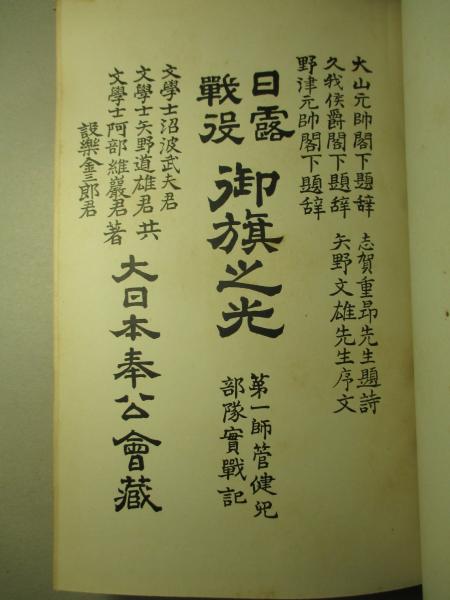 大山元帥閣下題辞
久我侯爵閣下題辞
野津元帥閣下題辞
志賀重昂先生題詩
矢野文雄先生序文
日露
戰役
御旗之光
第一師管健児
部隊實戰記
文學士沼波武夫君
文學士矢野道雄君
文學士阿部維巖君
設樂金三郎君
共
著
大日本奉公會藏